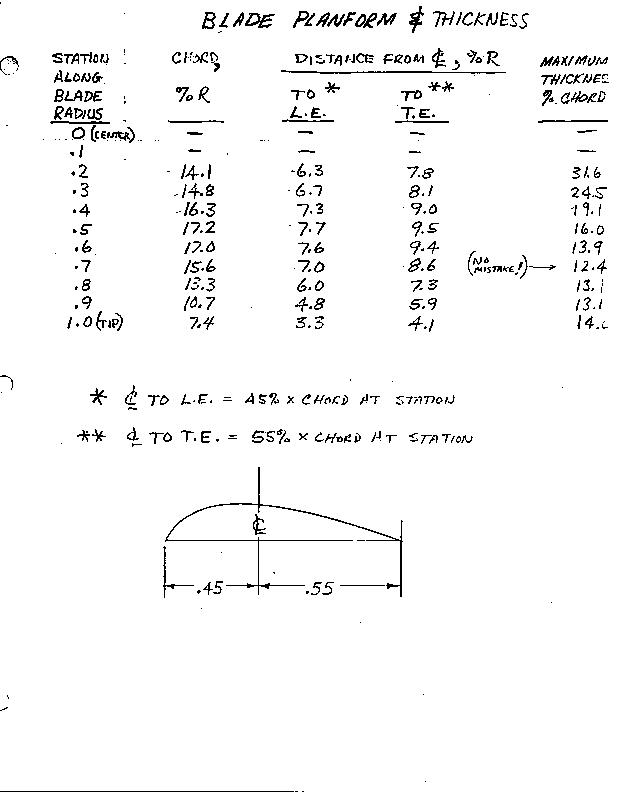 BLADE PLANFORM & THICKNESS
STATION ALONG BLADE RADIUS | CHORD, %R | DISTANCE FROM ℄, %R TO * L.E. | TO ** T.E. | MAXIMUM THICKNES % CHORD
0 (CENTER) — — — —
.1 — — — —
.2 14.1 6.3 7.8 31.6
.3 14.8 6.7 8.1 24.5
.4 16.3 7.3 9.0 19.1
.5 17.2 7.7 9.5 16.0
.6 17.0 7.6 9.4 13.9
.7 15.6 7.0 8.6 (NO MISTAKE!) → 12.4
.8 13.3 6.0 7.3 13.1
.9 10.7 4.8 5.9 13.1
1.0 (TIP) 7.4 3.3 4.1
* ℄ TO L.E. = 45% × CHORD AT STATION
** ℄ TO T.E. = 55% × CHORD AT STATION
℄
.45 .55